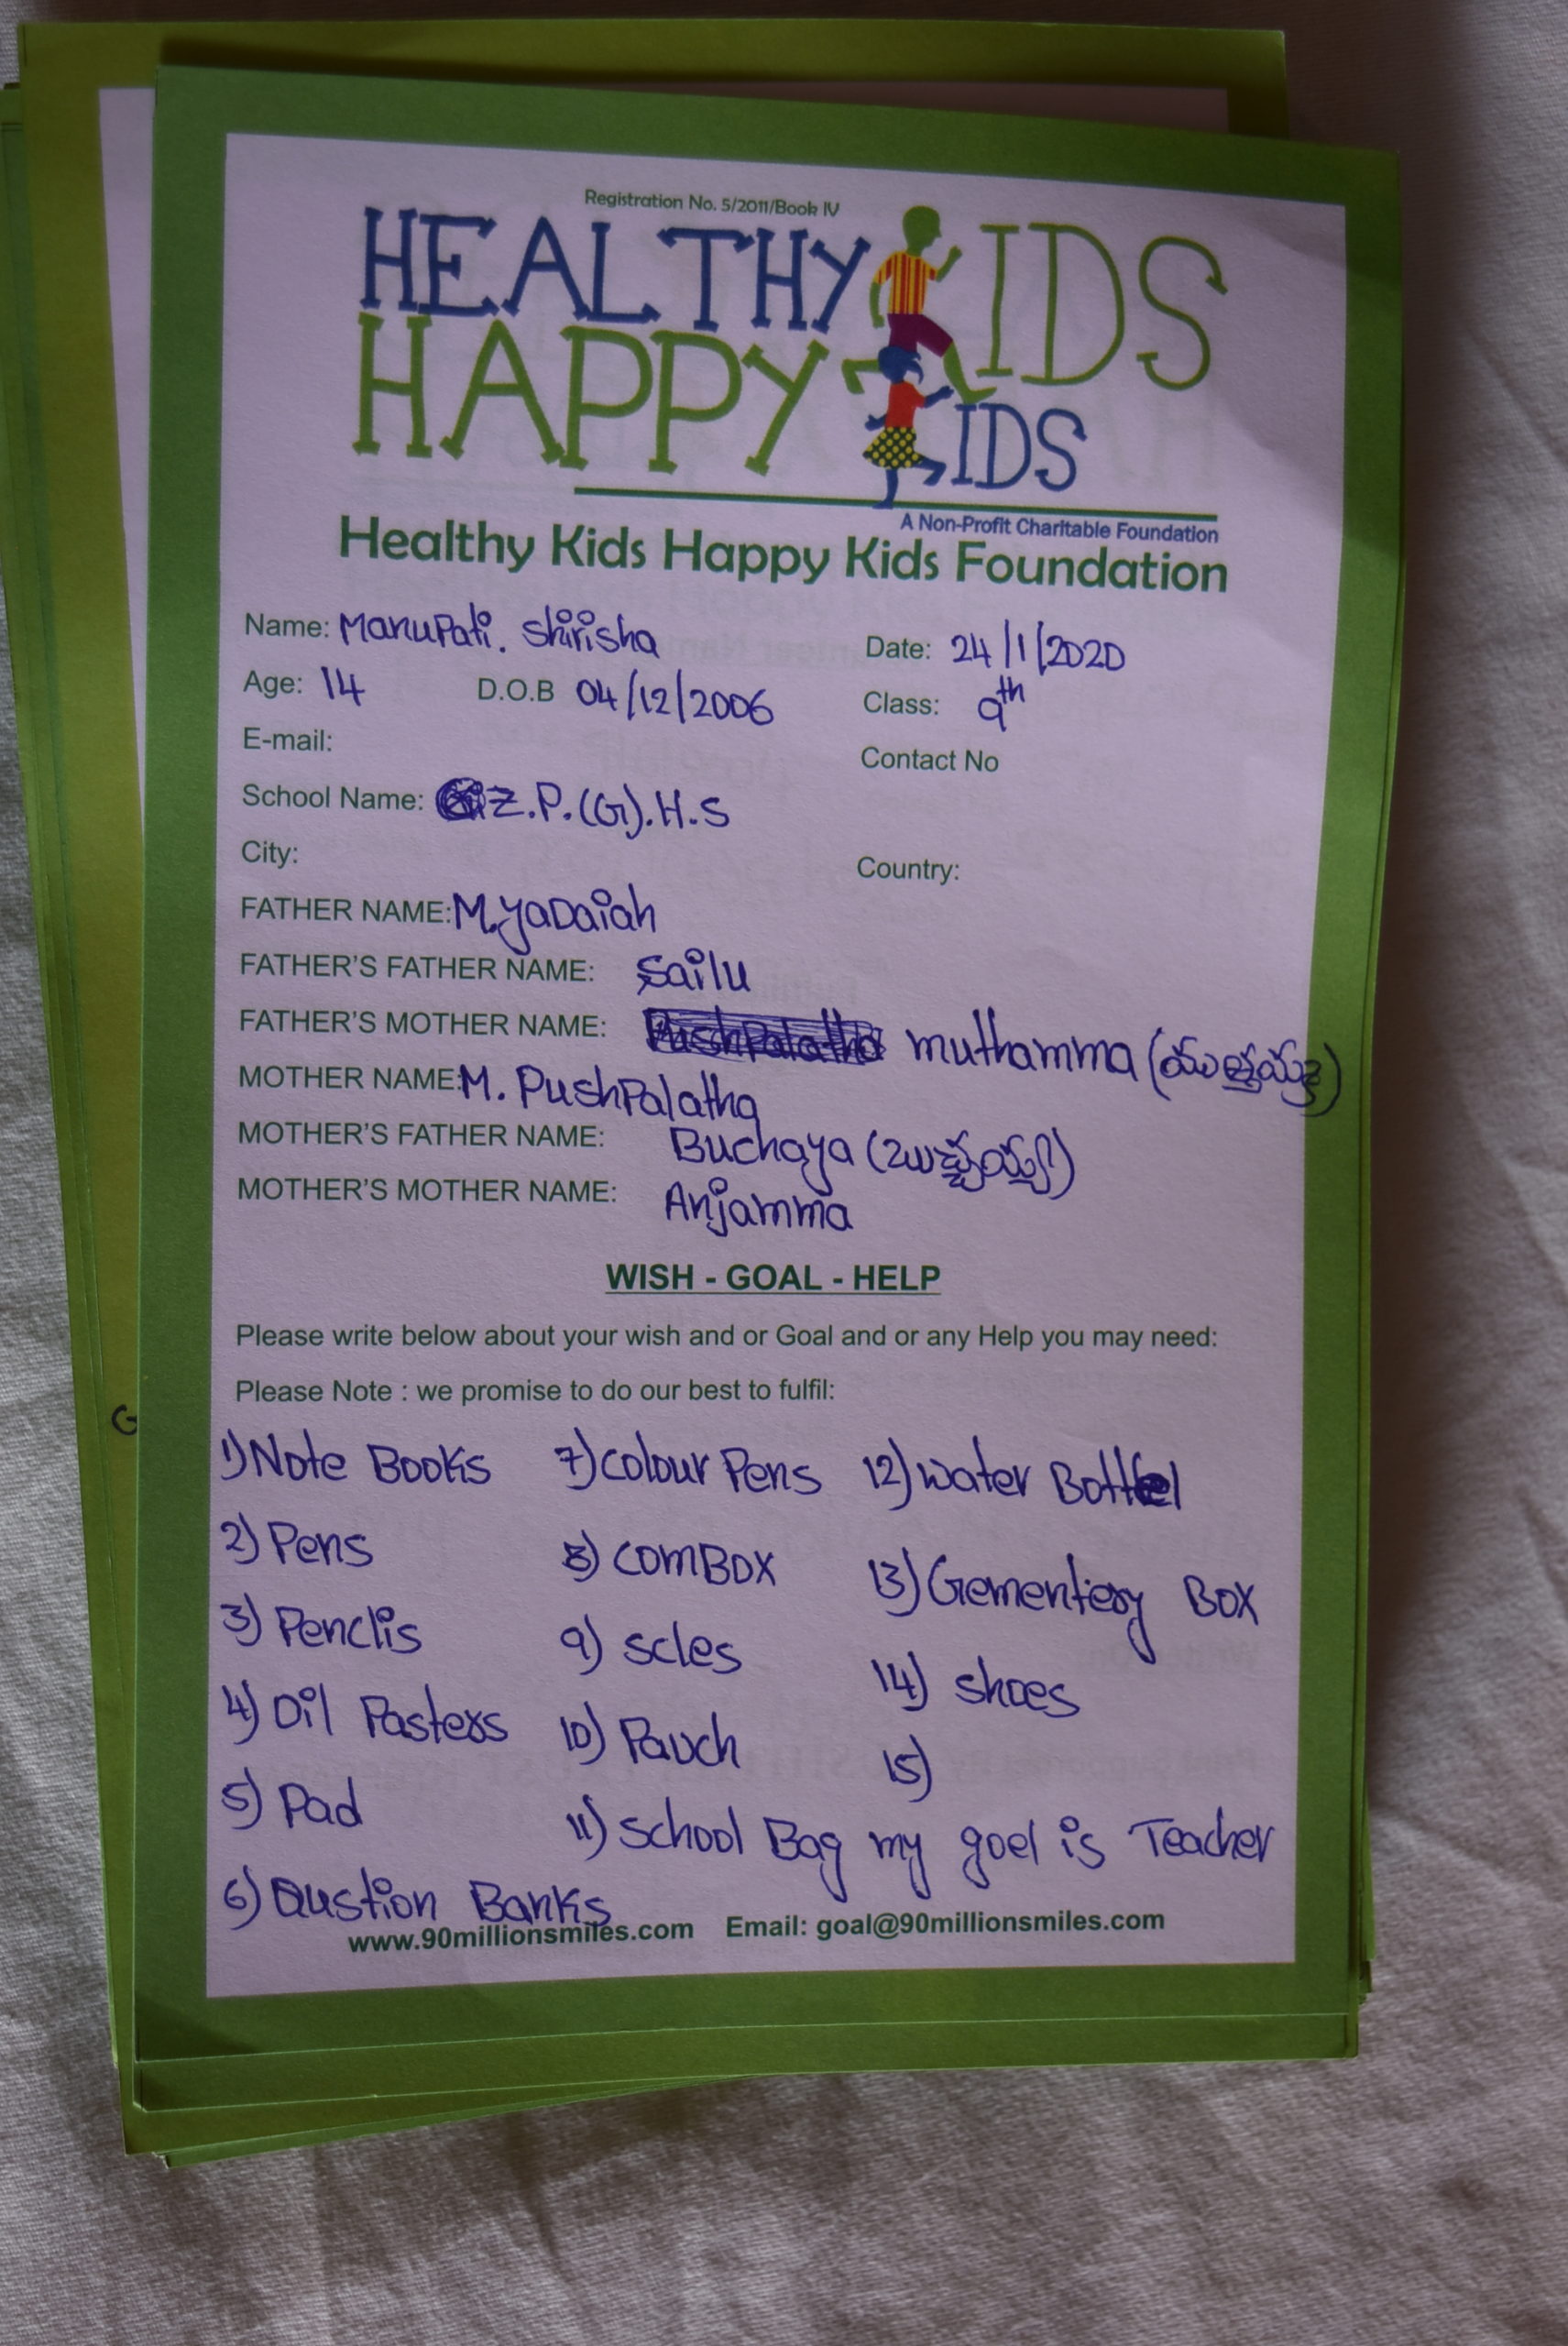 Registration No. 5/2011/Book IV
HEALTHY KIDS
HAPPY KIDS
A Non-Profit Charitable Foundation
Healthy Kids Happy Kids Foundation
Name: Manupati. Shirisha Date: 24/1/2020
Age: 14 D.O.B 04/12/2006 Class: 9th
E-mail: Contact No
School Name: Z.P.(G).H.S
City: Country:
FATHER NAME: M.yaDaiah
FATHER'S FATHER NAME: Sailu
FATHER'S MOTHER NAME: Pushpalatha muthamma (ముత్తమ్మ)
MOTHER NAME: M. PushPalatha
MOTHER'S FATHER NAME: Buchaya (బుచ్చయ్య)
MOTHER'S MOTHER NAME: Anjamma
WISH - GOAL - HELP
Please write below about your wish and or Goal and or any Help you may need:
Please Note : we promise to do our best to fulfil:
1) Note Books 7) colour Pens 12) water Bottel
2) Pens 8) comBox 13) Gementery Box
3) Penclis 9) scles 14) shoes
4) Oil Pasters 10) Pauch 15)
5) Pad 11) School Bag my goel is Teacher
6) Qustion Banks
www.90millionsmiles.com Email: goal@90millionsmiles.com
G